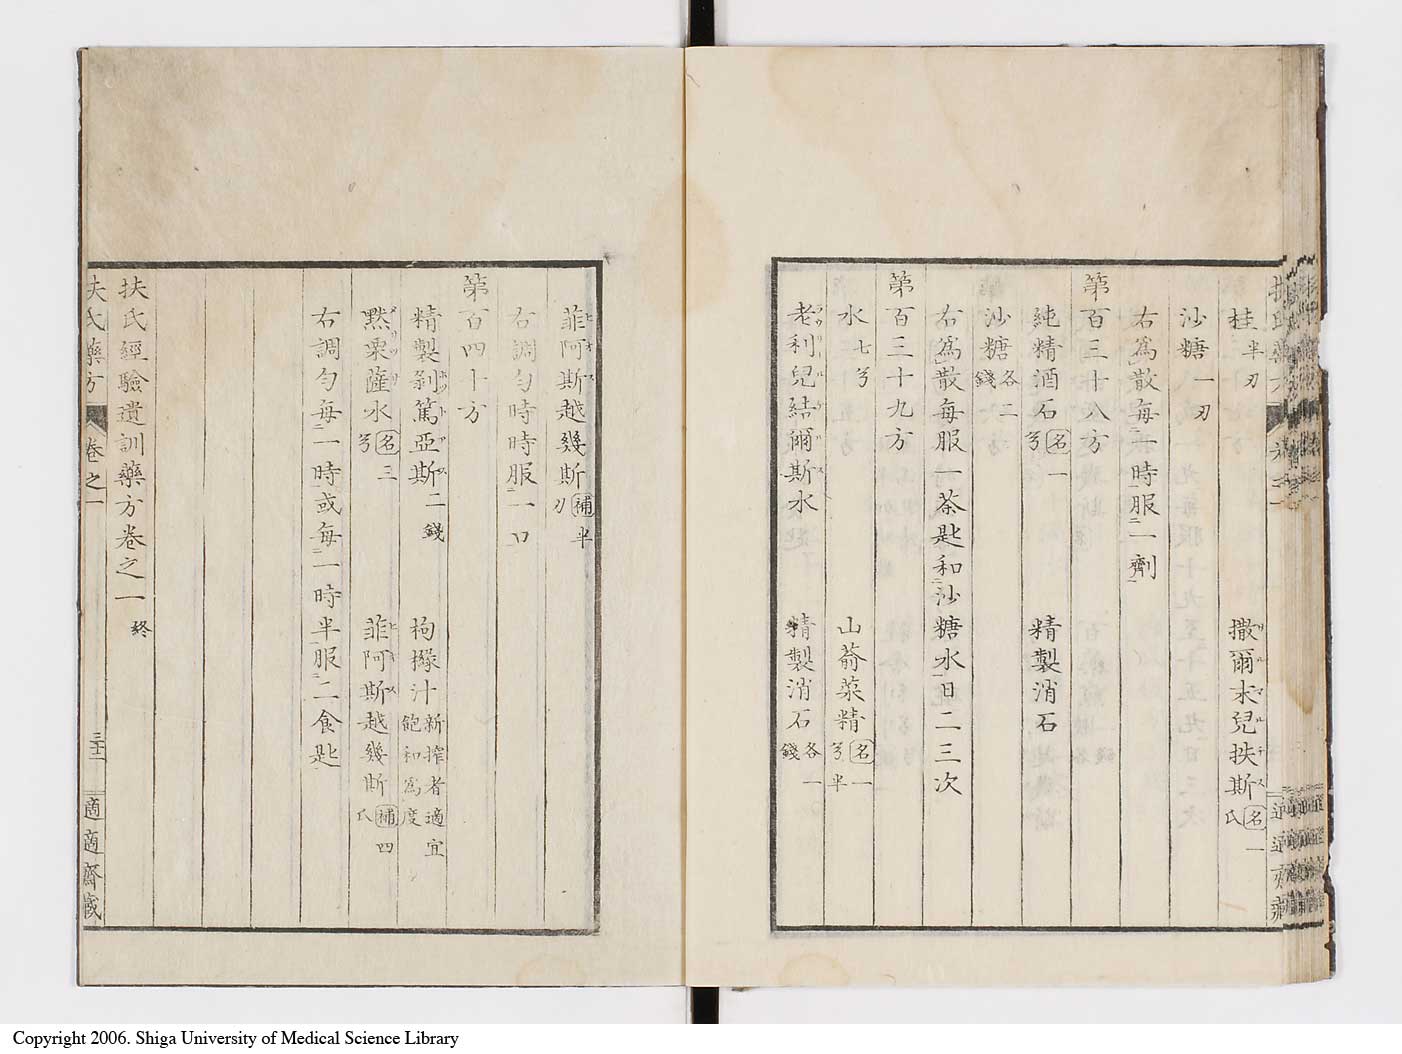 桂半刄 撒爾末兒扶斯名一氏
沙糖一刄
右爲散毎一時服一劑
第百三十八方
純精酒石名一弓 精製消石
沙糖各二錢
右爲散毎服一茶匙和沙糖水日二三次
第百三十九方
水七弓 山葥菜精名一弓半
老利兒結爾斯水 精製消石各一錢
菲阿斯越幾斯補半刄
右調勻時時服一口
第百四十方
精製剝篤亞斯二錢 枸櫞汁新搾者適宜飽和爲度
黙栗薩水名三弓 菲阿斯越幾斯補四氏
右調勻毎一時或毎一時半服二食匙
扶氏經驗遺訓藥方卷之一終
扶氏藥方 卷之一 三十二 適適齋藏
Copyright 2006. Shiga University of Medical Science Library